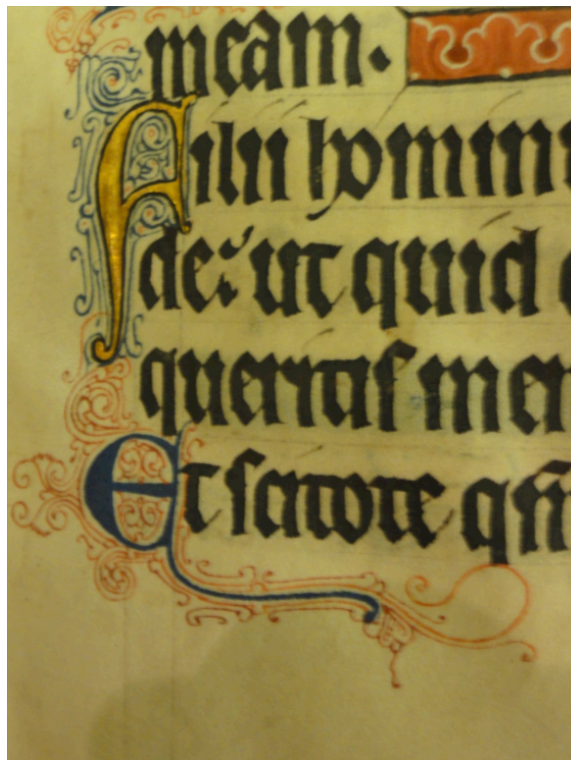 meam.
Filii homin
de: ut quid
queritis men
Et scitote qm̄